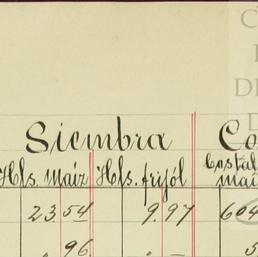 Siembra Co
Hfs. maíz Hfs. frijól Costal
maí
23 54 9.97 604
96 5